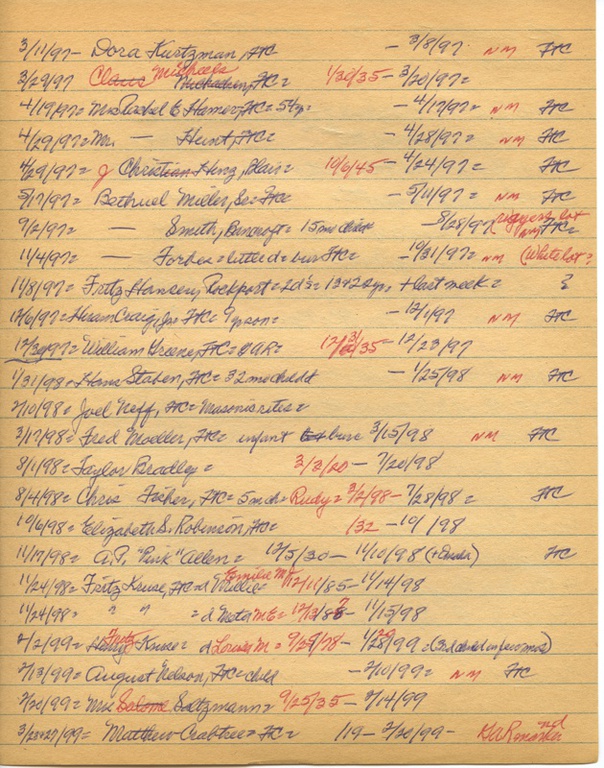 3/11/97 - Dora Kurtzman, FC - 3/8/97 NM FC
3/29/97 Claus Michaels Michaelsen, FC = 1/30/35 - 3/20/97 =
4/19/97 = Mrs Rachel E Hamer, FC = 54 yr = - 4/17/97 = NM FC
4/29/97 = Mrs. — Hunt, FC = - 4/28/97 = NM FC
4/29/97 = J Christian Hinz, Blair = 10/6/45 - 4/24/97 = FC
5/17/97 = Bethuel Miller, Se = FC - 5/11/97 = NM FC
9/2/97 = — Smith, Bancroft = 15 mo child - 8/28/97 lot NM FC
11/4/97 = — Forbes = little d = bur FC = - 10/31/97 = NM (White lot?
11/8/97 = Fritz Hansen, Rockport = 2 d's = 13 + 2 yr, + last week = ?
12/6/97 = Hiram Craig, Jr = FC = 9 yr son = - 12/1/97 NM FC
12/30/97 = William Greene, FC = GAR = 12/31/35 - 12/23/97
1/31/98 = Hans Staben, FC = 32 mo child d - 1/25/98 NM FC
2/10/98 = Joel Neff, FC = Masonic rites =
3/17/98 = Fred Moeller, FC = infant bur = 3/15/98 NM FC
8/1/98 = Taylor Bradley = 3/3/20 - 7/20/98
8/4/98 = Chris Fisher, FC = 5 mo ch = Rudy = 3/2/98 - 7/28/98 = FC
10/6/98 = Elizabeth S. Robinson, FC = /32 - 10/ /98
11/17/98 = A.P. "Pink" Allen = 12/5/30 - 11/10/98 FC
11/24/98 = Fritz Kruse, FC = d Millie = Emilie M 12/11/85 - 11/14/98
11/24/98 = " " = d Meta M E = 12/13/87 - 11/15/98
2/2/99 = Henry Fritz Kruse = d Louise M = 9/29/78 - 1/29/99 = (3rd child in few mos)
2/13/99 = August Nelson, FC = child - 2/10/99 = NM FC
2/20/99 = Mrs Salome Saltzmann = 9/25/35 - 2/14/99
3/23+27/99 = Matthew Crabtree = FC = /19 - 2/20/99 - GAR nd marker